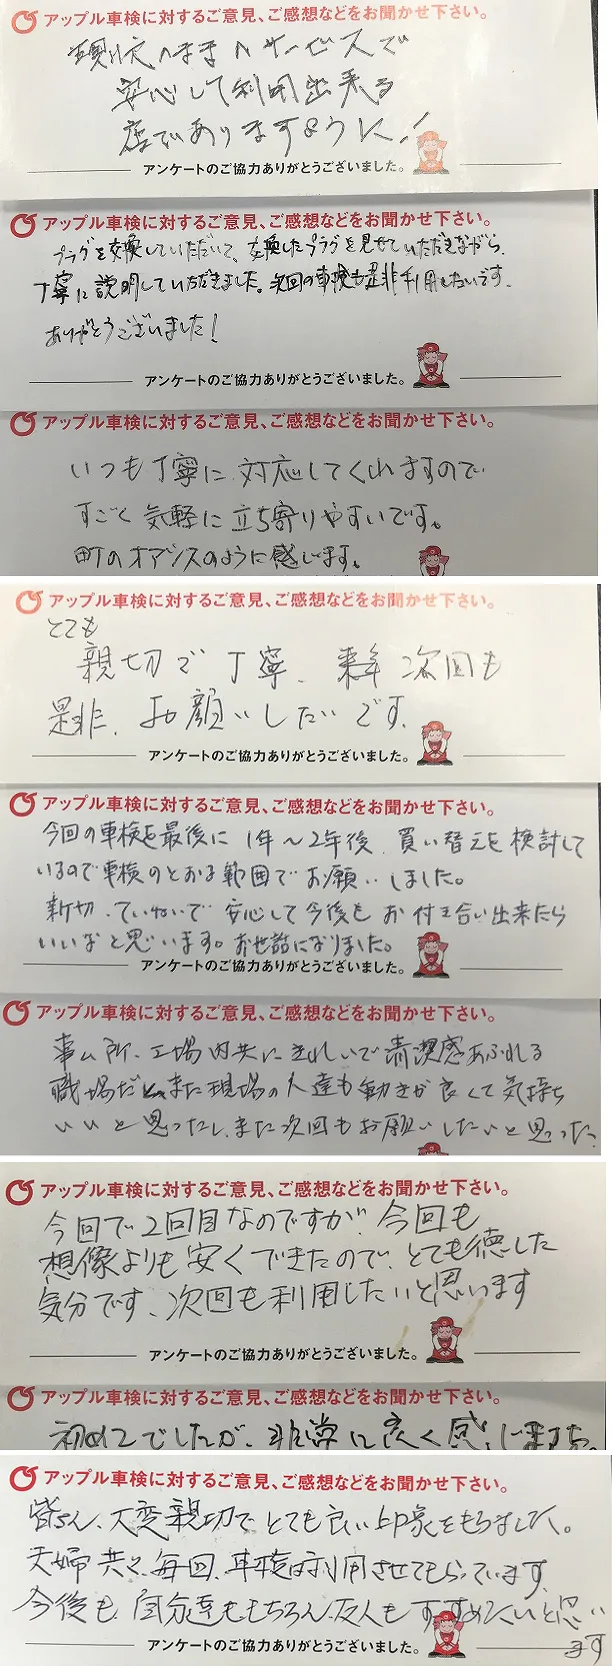 アップル車検に対するご意見、ご感想などをお聞かせ下さい。
現状のままのサービスで
安心して利用出来る
店でありますように!
アンケートのご協力ありがとうございました。
アップル車検に対するご意見、ご感想などをお聞かせ下さい。
プラグを交換していただいて、交換したプラグを見せていただきながら、
丁寧に説明していただきました。次回の車検も是非利用したいです。
ありがとうございました!
アンケートのご協力ありがとうございました。
アップル車検に対するご意見、ご感想などをお聞かせ下さい。
いつも丁寧に対応してくれますので
すごく気軽に立ち寄りやすいです。
町のオアシスのように感じます。
アップル車検に対するご意見、ご感想などをお聞かせ下さい。
とても
親切で丁寧、次回も
是非、お願いしたいです。
アンケートのご協力ありがとうございました。
アップル車検に対するご意見、ご感想などをお聞かせ下さい。
今回の車検を最後に1年〜2年後、買い替えを検討して
いるので車検のとおる範囲でお願いしました。
新切、ていねいで安心して今後もお付き合い出来たら
いいなと思います。お世話になりました。
アンケートのご協力ありがとうございました。
アップル車検に対するご意見、ご感想などをお聞かせ下さい。
事ム所、工場内共にきれいで清潔感あふれる
職場だし、また現場の人達も動きが良くて気持ち
いいと思ったし、また次回もお願いしたいと思った。
アップル車検に対するご意見、ご感想などをお聞かせ下さい。
今回で2回目なのですが、今回も
想像よりも安くできたので、とても徳した
気分です、次回も利用したいと思います
アンケートのご協力ありがとうございました。
アップル車検に対するご意見、ご感想などをお聞かせ下さい。
初めてでしたが、非常に良く感じました。
アップル車検に対するご意見、ご感想などをお聞かせ下さい。
皆さん、大変親切でとても良い印象をもちました。
夫婦共々、毎回、車検は利用させてもらっています。
今後も、自分達ももちろん、友人もすすめたいと思い
ます
アンケートのご協力ありがとうございました。